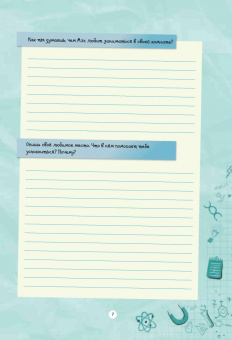 Как ты думаешь, чем Аля любит заниматься в своей комнате?
Опиши своё любимое место. Что в нём помогает тебе
успокоиться? Почему?
7